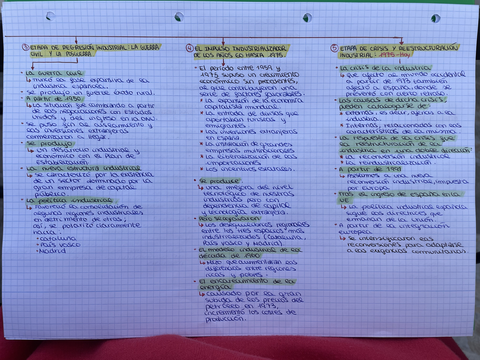 ③ ETAPA DE REGRESIÓN INDUSTRIAL: LA GUERRA
CIVIL Y LA POSGUERRA
La guerra civil
industria española.
Se produjo un
A partir de 1950
La situación que
de las negociaciones con Estados
Unidos y del ingreso en la ONU
las inversiones extranjeras
comienzan a llegar
Se produjo
un desarrollo industrial y
económico con el Plan de
Estabilización
La nueva estructura industrial
se caracteriza por la existencia
de un sector formado por la
gran empresa de capital
público
La política industrial
favoreció la concentración de
algunas regiones industriales
en detrimento de otras;
así, se polarizó claramente
hacia
Cataluña
País Vasco
Madrid
④ EL IMPULSO INDUSTRIALIZADOR
DE LOS AÑOS 60 HASTA 1975
El período entre 1959 y
1973 supuso un crecimiento
económico sin precedentes,
al que contribuyeron una
serie de factores
La expansión de la economía
capitalista mundial
La entrada de divisas que
aportaron turistas y
emigrantes
Las inversiones extranjeras
en España
La instalación de grandes
empresas multinacionales
La liberalización de las
importaciones
Los incentivos estatales
Se produce
una mejora del nivel
tecnológico de nuestra
industria pero con
dependencia de capital
y tecnología extranjera.
Los desequilibrios regionales
entre los tres espacios más
industrializados (Cataluña,
País Vasco y Madrid)
El modelo industrial de la
década de 1960
Hizo que aumentaran las
diferencias entre regiones
ricas y pobres.
El encarecimiento de la
energía
causado por la gran
subida de los precios del
petróleo en 1973,
incrementó los costes de
producción.
⑤ ETAPA DE CRISIS Y REESTRUCTURACIÓN
INDUSTRIAL: 1975-Hoy
La crisis de la industria
que afectó al mundo occidental
a partir de 1973 también
afectó a España, donde se
presentó con cierto retraso
Las causas de dicha crisis,
pueden catalogarse de
externas, es decir, ajenas a la
industria
internas, relacionadas con las
características de la misma
La respuesta de la crisis fue
la reestructuración de la
industria en una doble dirección
La reconversión industrial
La reindustrialización
A partir de 1991
asistimos a una nueva
reconversión industrial, impuesta
por Europa
Tras el ingreso de España en la
UE
La política industrial española
sigue las directrices que
emanan de la Unión
A partir de la integración
europea
se intensificaron las
reconversiones para adaptarse
a las exigencias comunitarias